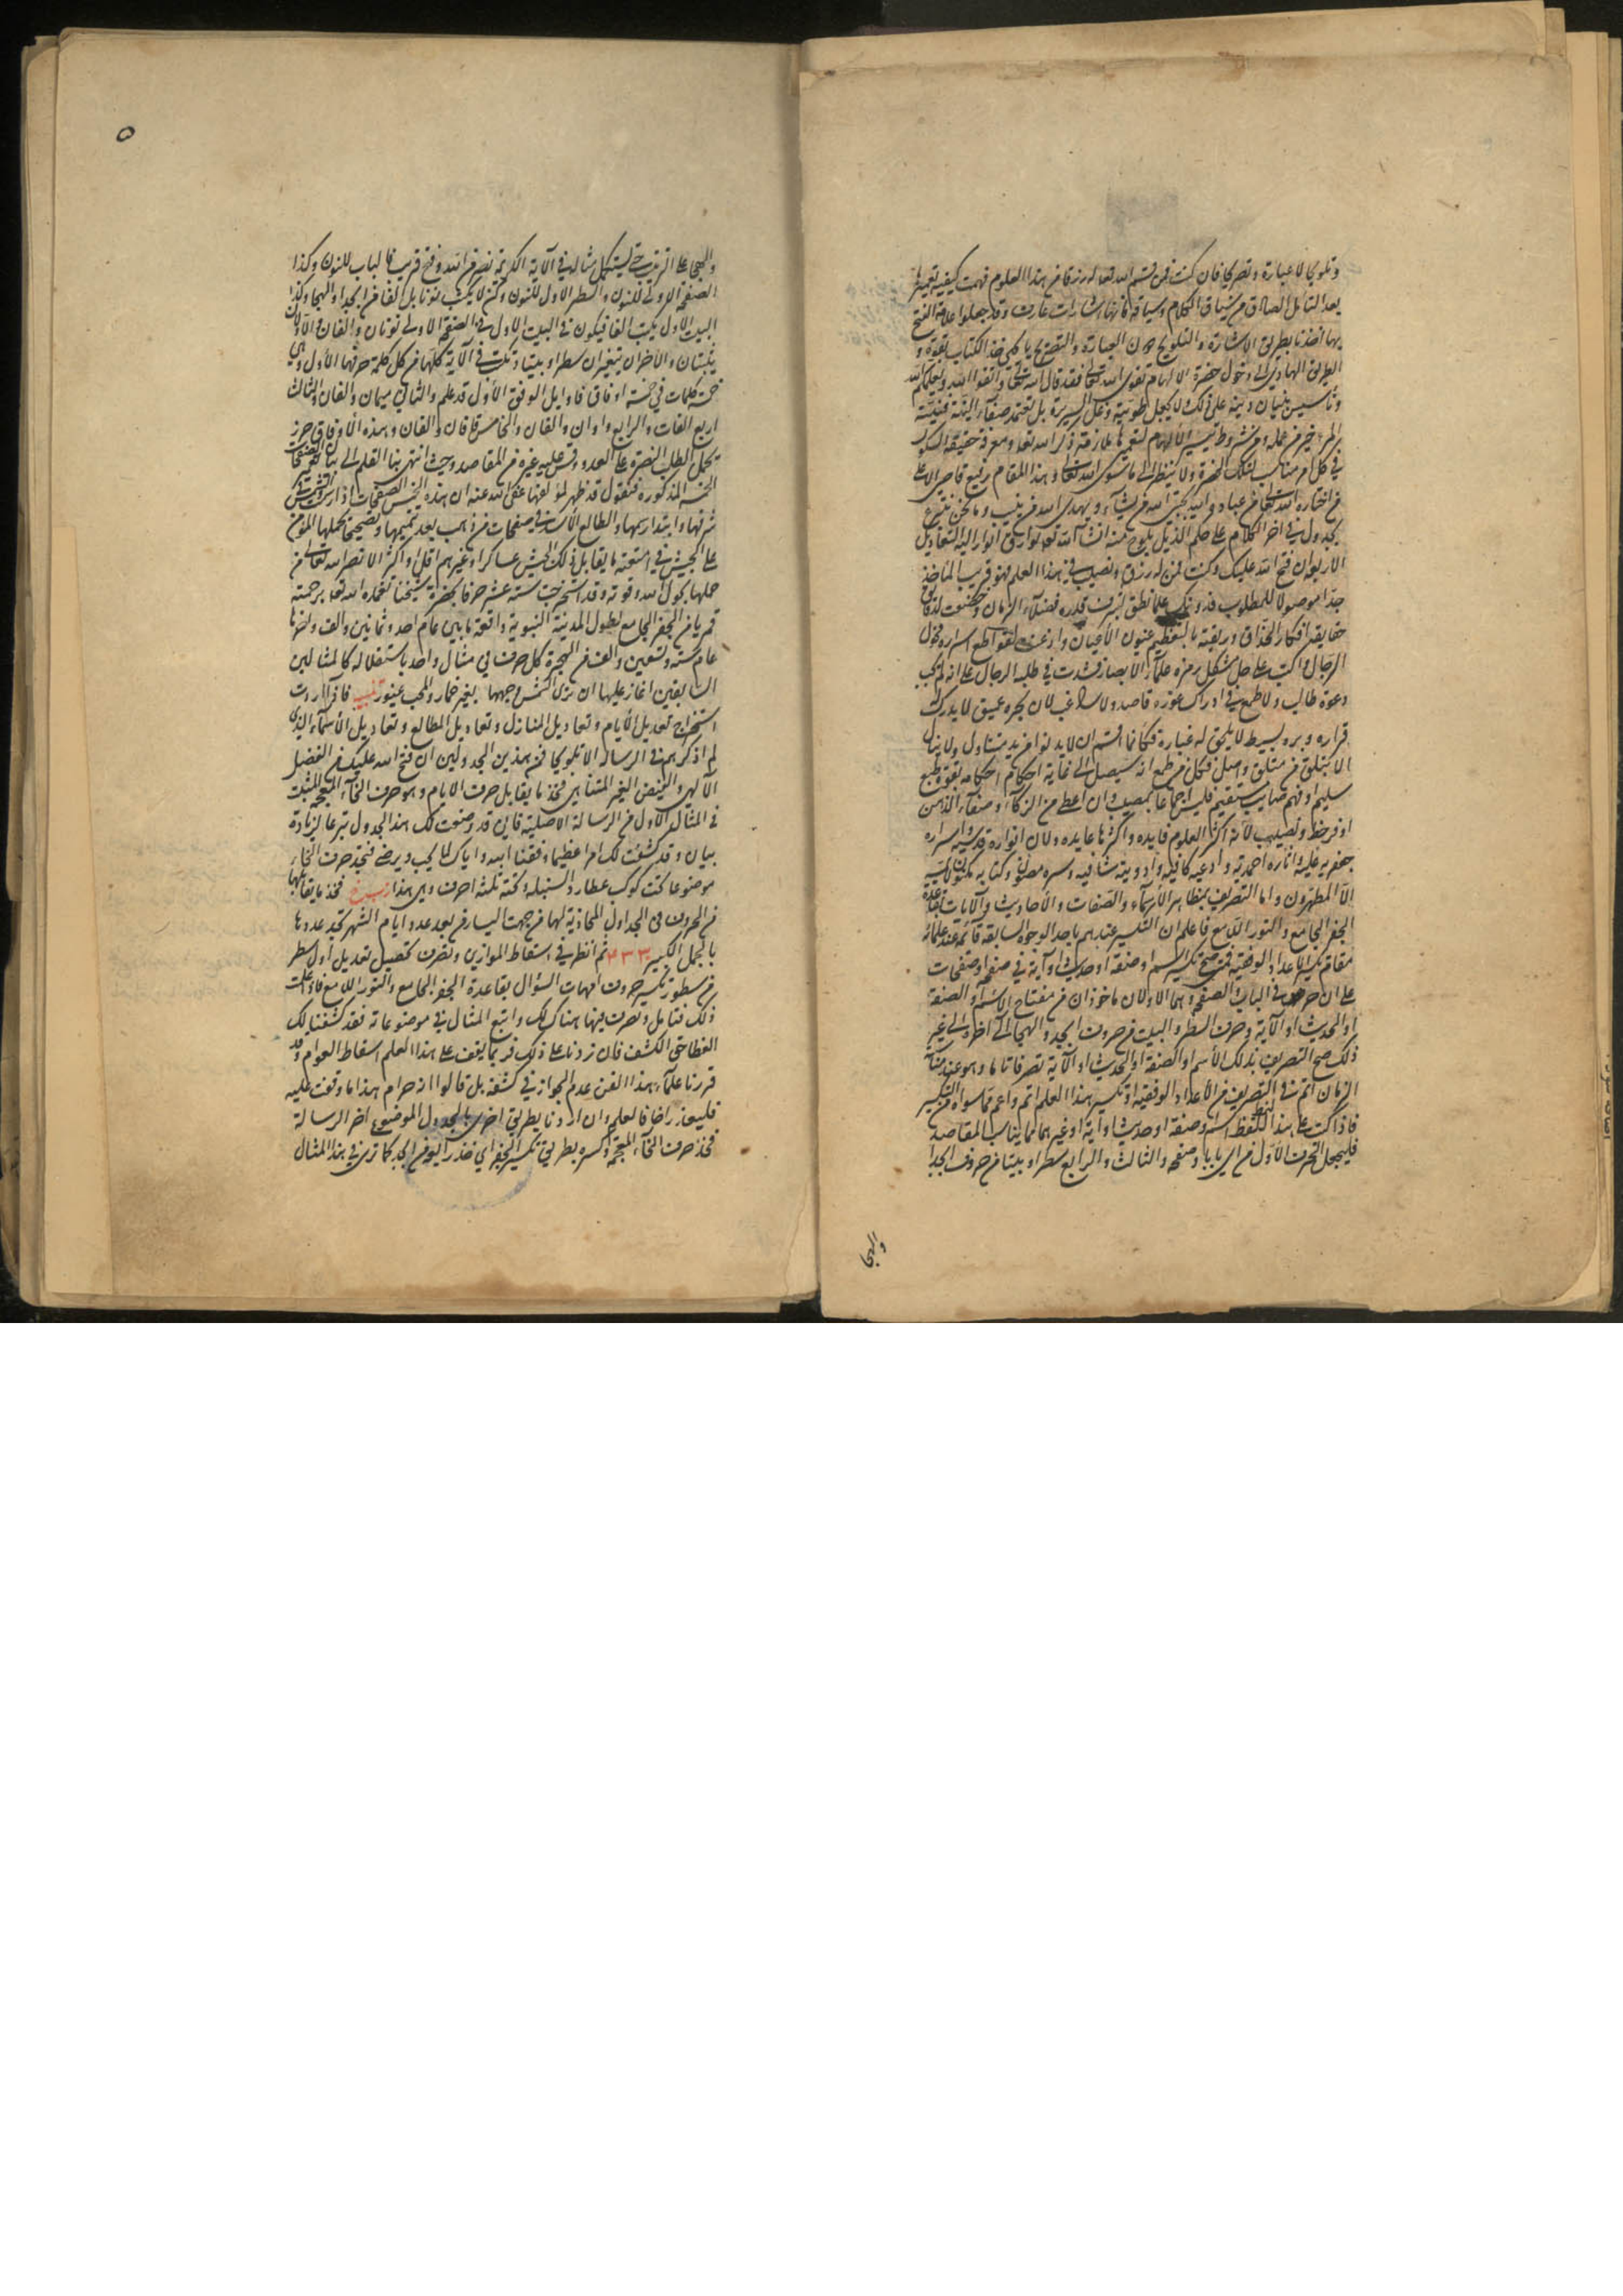 وتلويحا لا عبارة وتصريحا فان كنت ممن قسم الله تعالى له رزقا من هذا العلوم فهمت كيفية تعميرها
بعد التأمل الصادق من سياق الكلام وسياقه فانها اشارات عارت وقد جعلوا علامة الفتح
بها اخذنا بطريق الاشارة والتلويح دون العبارة والتصريح يا يحيى خذ الكتاب بقوة و
الطريق الهادي الى دخول حضرة الالهام تقوى الله تعالى فقد قال الله تعالى واتقوا الله ويعلمكم الله
وتأسيس بنيان دينه على ذلك ولا يجعل طويته وغل السريرة بل تعتمد صفاء النية فنية
المرء خير من عمله ومن شروط تيسير الالهام لتعميرها ملازمة ذكر الله تعالى ومعرفة حقيقة السلوك
في كل امر مناسب لتلك الحضرة ولا ينظر الى ما سوى الله تعالى وهذا المقام رفيع قاصر الا على
من اختاره الله تعالى من عباده والله يجتبي الله من يشاء ويهدي الله من ينيب وها نحن نتبرع
بجدول في اخر الكلام على حكم الذيل يلوح منه انشاء الله تعالى بوارق انوار اليه التعاديل
الاربع وان فتح الله عليك وكنت ممن له رزق ونصيب في هذا العلم فهو قريب المأخذ
جدا موصولا للمطلوب فدونك علما نطق بشرف قدره فضلاء الزمان وخضعت لدقايق
حقايقه افكار الحذاق ورمقته بالتعظيم عيون الاعيان واذعنت لقواطع اسراره فحول
الرجال واكبت على حل مشكل رمزه علماء الابصار فشدت في طلبه الرحال على انه لم يجب
دعوة طالب ولا طمع في ادراك غوره قاصد ولا راغب لان بحره عميق لا يدرك
قراره وبره بسيط لا يلحق له غباره فكأنما اقسم ان لا يدنو من يد متناول ولا ينال
الا بتلق من متلق واصل فكل من طمع انه سيصل الى غاية احكام احكامه بقوة طبع
سليم او فهم صايب مستقيم فليس اجماعا بمصيب وان اعطي من الذكاء وصفاء الذهن
اوفر حظ ونصيب لانه اكثر العلوم فايده واكثرها عايده ولان انواره قدسية واسراره
جعفريه علية واثاره احمدية وادعيه كافيه وادوية شافيه وسره مصون وكتابه مكنون لا يمسه
الا المطهرون واما التصريف بظاهر الاسماء والصفات والاحاديث والآيات بقاعدة
الجفر الجامع والنور اللامع فاعلم ان التكسير عندهم باحد الوجوه السابقة قائم عند علمائه
مقام تكسير الاعداد الوفقية فمتى صح تكسير اسم او صفة او حديث او آية في صفحة او صفحات
على ان حرف في الباب والصفحة وهما الاولان ماخوذان من مفتاح الاسم او الصفة
او الحديث او الآية وحرف السطر والبيت من حروف ابجد والهجا الى آخره والى غير
ذلك صح التصريف بذلك الاسم او الصفة او الحديث او الآية تصرفا تاما وهو عند مشايخ
الزمان اتم في التصريف من الاعداد الوفقية وتكسير هذا العلم اتم واعم مما سواه من التكسير
فاذا كتب على هذا النمط اسم او صفة او حديث او آية او غيرهما مما يناسب المقاصد
فليجعل الحرف الاول من اي بابا وصفحة والثالث والرابع سطرا وبيتا من حروف ابجد
والهجا
٥
والهجا على الترتيب حتى يستكمل مثاله في الآية الكريمة نصر من الله وفتح قريب فالباب للنون وكذا
الصفحة الاولى للنون والسطر الاول للنون ولكن لا يكتب نونا بل الفا من ابجد او الهجا وكذا
البيت الاول يكتب الفا فيكون في البيت الاول من الصفحة الاولى نونان والفان والاولان
يثبتان والاخران يتغيران سطرا وبيتا وتكتب في الآية كلها من كل كلمة حرفها الاول وهي
خمسة كلمات في خمسة اوفاق فاوايل الوفق الاول قد علم والثاني ميمان والفان والثالث
اربع الفات والرابع واوان والفان والخامس قافان والفان وهذه الاوفاق حرز
يحمل لطلب النصرة على العدو وقس عليه غيره من المقاصد وحيث انتهى بنا القلم الى بيان الصفحات
الخمسة المذكوره فنقول قد ظهر لمؤلفها عفى الله عنه ان هذه الخمس الصفحات اذا رسمت في
شرفها وابتدأ رسمها والطالع الاسد في صفحات من ذهب بعد تتميمها وتصحيحها يحملها المؤمن
على الجيش في امتعته ما يقابل ذلك الجيش عساكرا وغيرهم اقل او اكثر الا نصر الله تعالى من
حملها بحول الله وقوته وقد استخرجت ستة عشر حرفا بحضرة شيخنا تغمده الله تعالى برحمته
قريبا من الجفر الجامع بطول المدينة النبوية واقعة ما بين عام احد وثمانين والف واخرها
عام ستة وتسعين والف من الهجرة كل حرف في مثال واحد باستقلاله كالمثالين
السابقين اغار عليها ان ترى الشمس وجهها بغير خمار والمحب غيور تنبيه فاذا اردت
استخراج تعديل الايام وتعاديل المنازل وتعاديل المطالع وتعاديل الاسماء الذي
لم اذكرهم في الرسالة الا تلويحا فمن هذين الجدولين ان فتح الله عليك من الفضل
الآلهي والفيض الغير المتناهي فخذ ما يقابل حرف الايام وهو حرف الخاء المعجمة المثبت
في المثال الاول من الرسالة الاصلية فاني قد وضعت لك هذا الجدول تبرعا لزيادة
بيان وقد كشفت لك امرا عظيما وفقنا الله واياك لما يحب ويرضى فتجد حرف الخاء
موضوعا تحت كوكب عطارد السنبلة وتحته ثلثة احرف وهي هذا فخذ ما يقابلها
من الحروف في الجداول المحاذية لها من جهة اليسار في بعد عدد ايام الشهر تجد عددها
بالجمل الكبير ٤٣٣ ثم انظر في اسقاط الموازي وتصرف تحصيل تعديل اول سطر
من سطور تكسير حروف امهات السؤال بقاعدة الجفر الجامع والنور اللامع فاذا علمت
ذلك فتأمل وتصرف فيها هناك لك واتبع المثال في موضوعاته فقد كشفنا لك
الغطا حق الكشف فان زدنا على ذلك فربما يقف على هذا العلم اسقاط العوام وقد
قررنا علماء هذا الفن عدم الجواز في كشفه بل قالوا انه حرام هذا ما وقفت عليه
فليعذر اخا فالعلم وان اردنا بطريق اخرى بالجدول الموضوع اخر الرسالة
فخذ حرف الخاء المعجمة وكسره بطريق تكسير الجفر اي خذ رابعه من ابجد كما ترى في هذا المثال